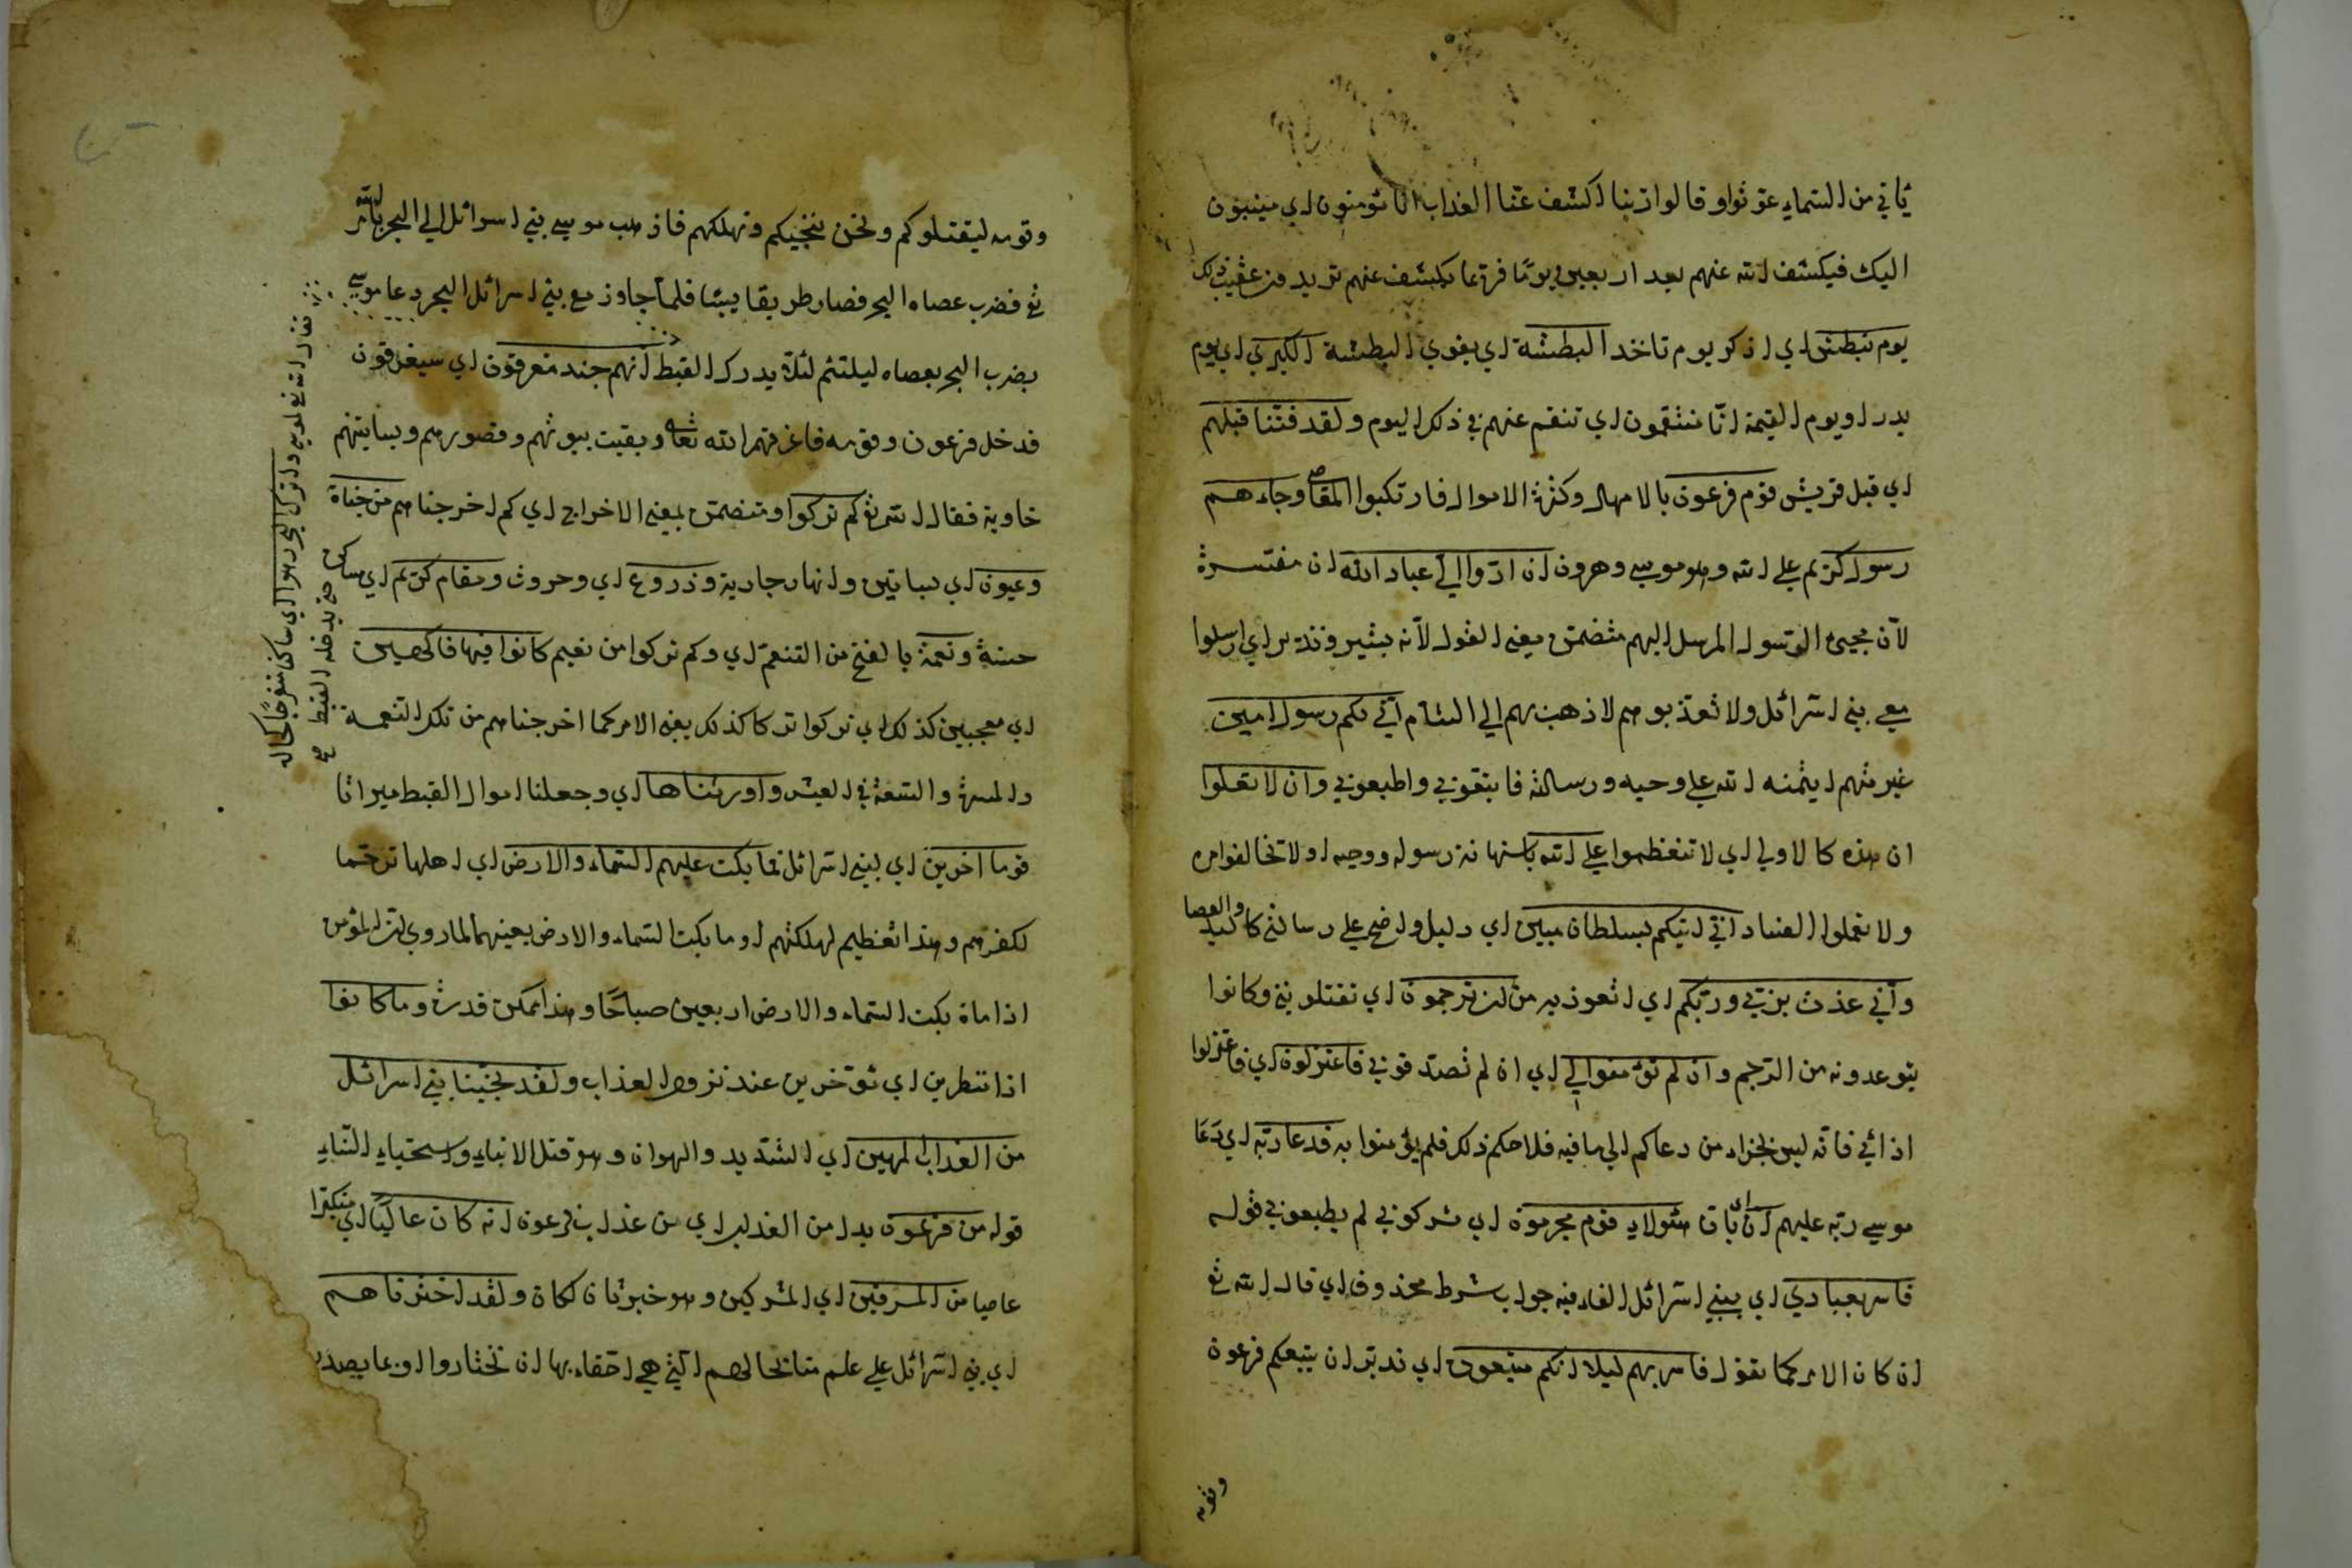 يأتي من السماء عوّثوا وقالوا ربنا اكشف عنا العذاب انا مؤمنون اي منيبون
اليك فيكشف الله عنهم بعد اربعين يومًا فربما يكشف عنهم تريد من عقيب ذلك
يوم نبطش اي اذكر يوم تاخذ البطشة اي بقوي البطشة الكبري اي يوم
بدر او يوم القيمة انّا منتقمون اي تنتقم عنهم في ذلك اليوم ولقد فتنّا قبلهم
اي قبل قريش قوم فرعون بالامهال وكثرة الاموال فارتكبوا المقاصي وجاءهم
رسول كريم علي الله وهو موسي وهرون ان ادّوا اليّ عباد الله ان مفتسرة
لآن مجيئ الرسول المرسل اليهم متضمن معني القول لآنه بشير ونذير اي ارسلوا
معي بني اسرائل ولا تعذبوهم لاذهب بهم الي الشام انّي لكم رسول امين
غير متهم ايتمنه الله علي وحيه ورسالته فابتقوني واطيعوني وان لا تعلوا
ان هذه كالاولي اي لا تتعظموا علي الله باستهانة رسوله ووحيه اولا تخالفوا من
ولا تعملوا الفساد انّي اتيكم بسلطان مبين اي دليل واضح علي رسالتي كاليد والعصا
وانّي عذت بربّي وربّكم اي اتعوذ به من ان ترجمون اي تقتلونني وكانوا
يتوعدونه من الرجم وان لم تؤمنوا لي اي ان لم تصدقوني فاعتزلون اي فاعتزلوا
اذائي فانه ليس بجزاء من دعاكم الي ما فيه فلاحكم ذلك فلم يؤمنوا به فدعا ربّه اي دَعَا
موسي ربّه عليهم انّ اي بان هؤلاء قوم مجرمون اي شركون لم يطيعوني قوله
فاسر بعبادي اي ببني اسرائل الفاء فيه جواب شرط محذوف اي قال الله تع
ان كان الامر كما تقول فاسر بهم ليلا انكم متبعون اي ندبّر ان يتبعكم فرعون
وقومه
وقومه ليقتلوكم ونحن ننجيكم ونهلكهم فاذهب موسي بني اسرائل الي البحر بامر الله
تع فضرب عصاه البحر فصار طريقا يبسًا فلمّا جاوز مع بني اسرائل البحر دعا موسي
بضرب البحر بعصاه ليلتئم لئلا يدرك القبط انهم جند مغرقون اي سيغرقون
فدخل فرعون وقومه فاغرقهم الله تعالي وبقيت بيوتهم وقصورهم وبساتينهم
خاوية فقال الله تع كم تركوا وتتضمن بمعني الاخراج اي كم اخرجناهم من جناة
وعيون اي بساتين وانهار جارية وذروع اي وحروث ومقام كريم اي مساكن
حسنة ونعمة بالفتح من التنعم اي وكم تركوا من نعيم كانوا فيها فاكهين
اي معجبين كذلك اي تركوا تركا كذلك يعني الامر كما اخرجناهم من تلك النعمة
والمسرة والسّعة في العيش واورثناها اي وجعلنا اموال القبط ميراثا
قوما اخرين اي لبني اسرائل فما بكت عليهم السماء والارض اي اهلها ترحّما
لكفرهم وهذا تعظيم لهلكتهم او ما بكت السماء والارض بعينهما لما روي ان المؤمن
اذا ماة بكت السماء والارض اربعين صباحًا وهذا ممكن قدرة وما كانوا
اذا منتظرين اي مؤخرين عند نزول العذاب ولقد نجّينا بني اسرائل
من العذاب المهين اي الشديد والهوان وهو قتل الابناء واستحياء النساء
قوله من فرعون بدل من العذاب اي من عذاب فرعون انه كان عاليًا اي متكبرا
عاصيا من المسرفين اي المشركين وهو خبر ثان لكان ولقد اخترناهم
اي بني اسرائل علي علم منا بحالهم التي هي احقاء بها ان نختاروا او بما يصدر
تع لموسي واترك البحر رهوا اي ساكنا منفرجًا كحاله
حتي يدخله القبط صح